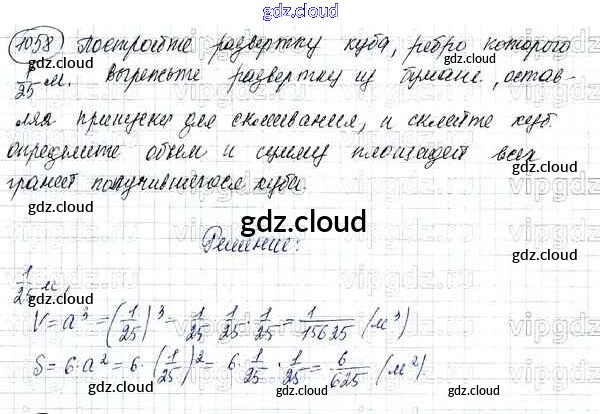 gdz.cloud
1058) Постройте развертку куба, ребро которого
1/25 м. Вырежьте развертку из бумаги, остав-
ляя припуски для склеивания, и склейте куб.
Определите объем и сумму площадей всех
граней получившегося куба.
gdz.cloud
Решение:
1/25 м,
V = a³ = (1/25)³ = 1/25 · 1/25 · 1/25 = 1/15625 (м³)
S = 6·a² = 6·(1/25)² = 6 · 1/25 · 1/25 = 6/625 (м²).
gdz.cloud